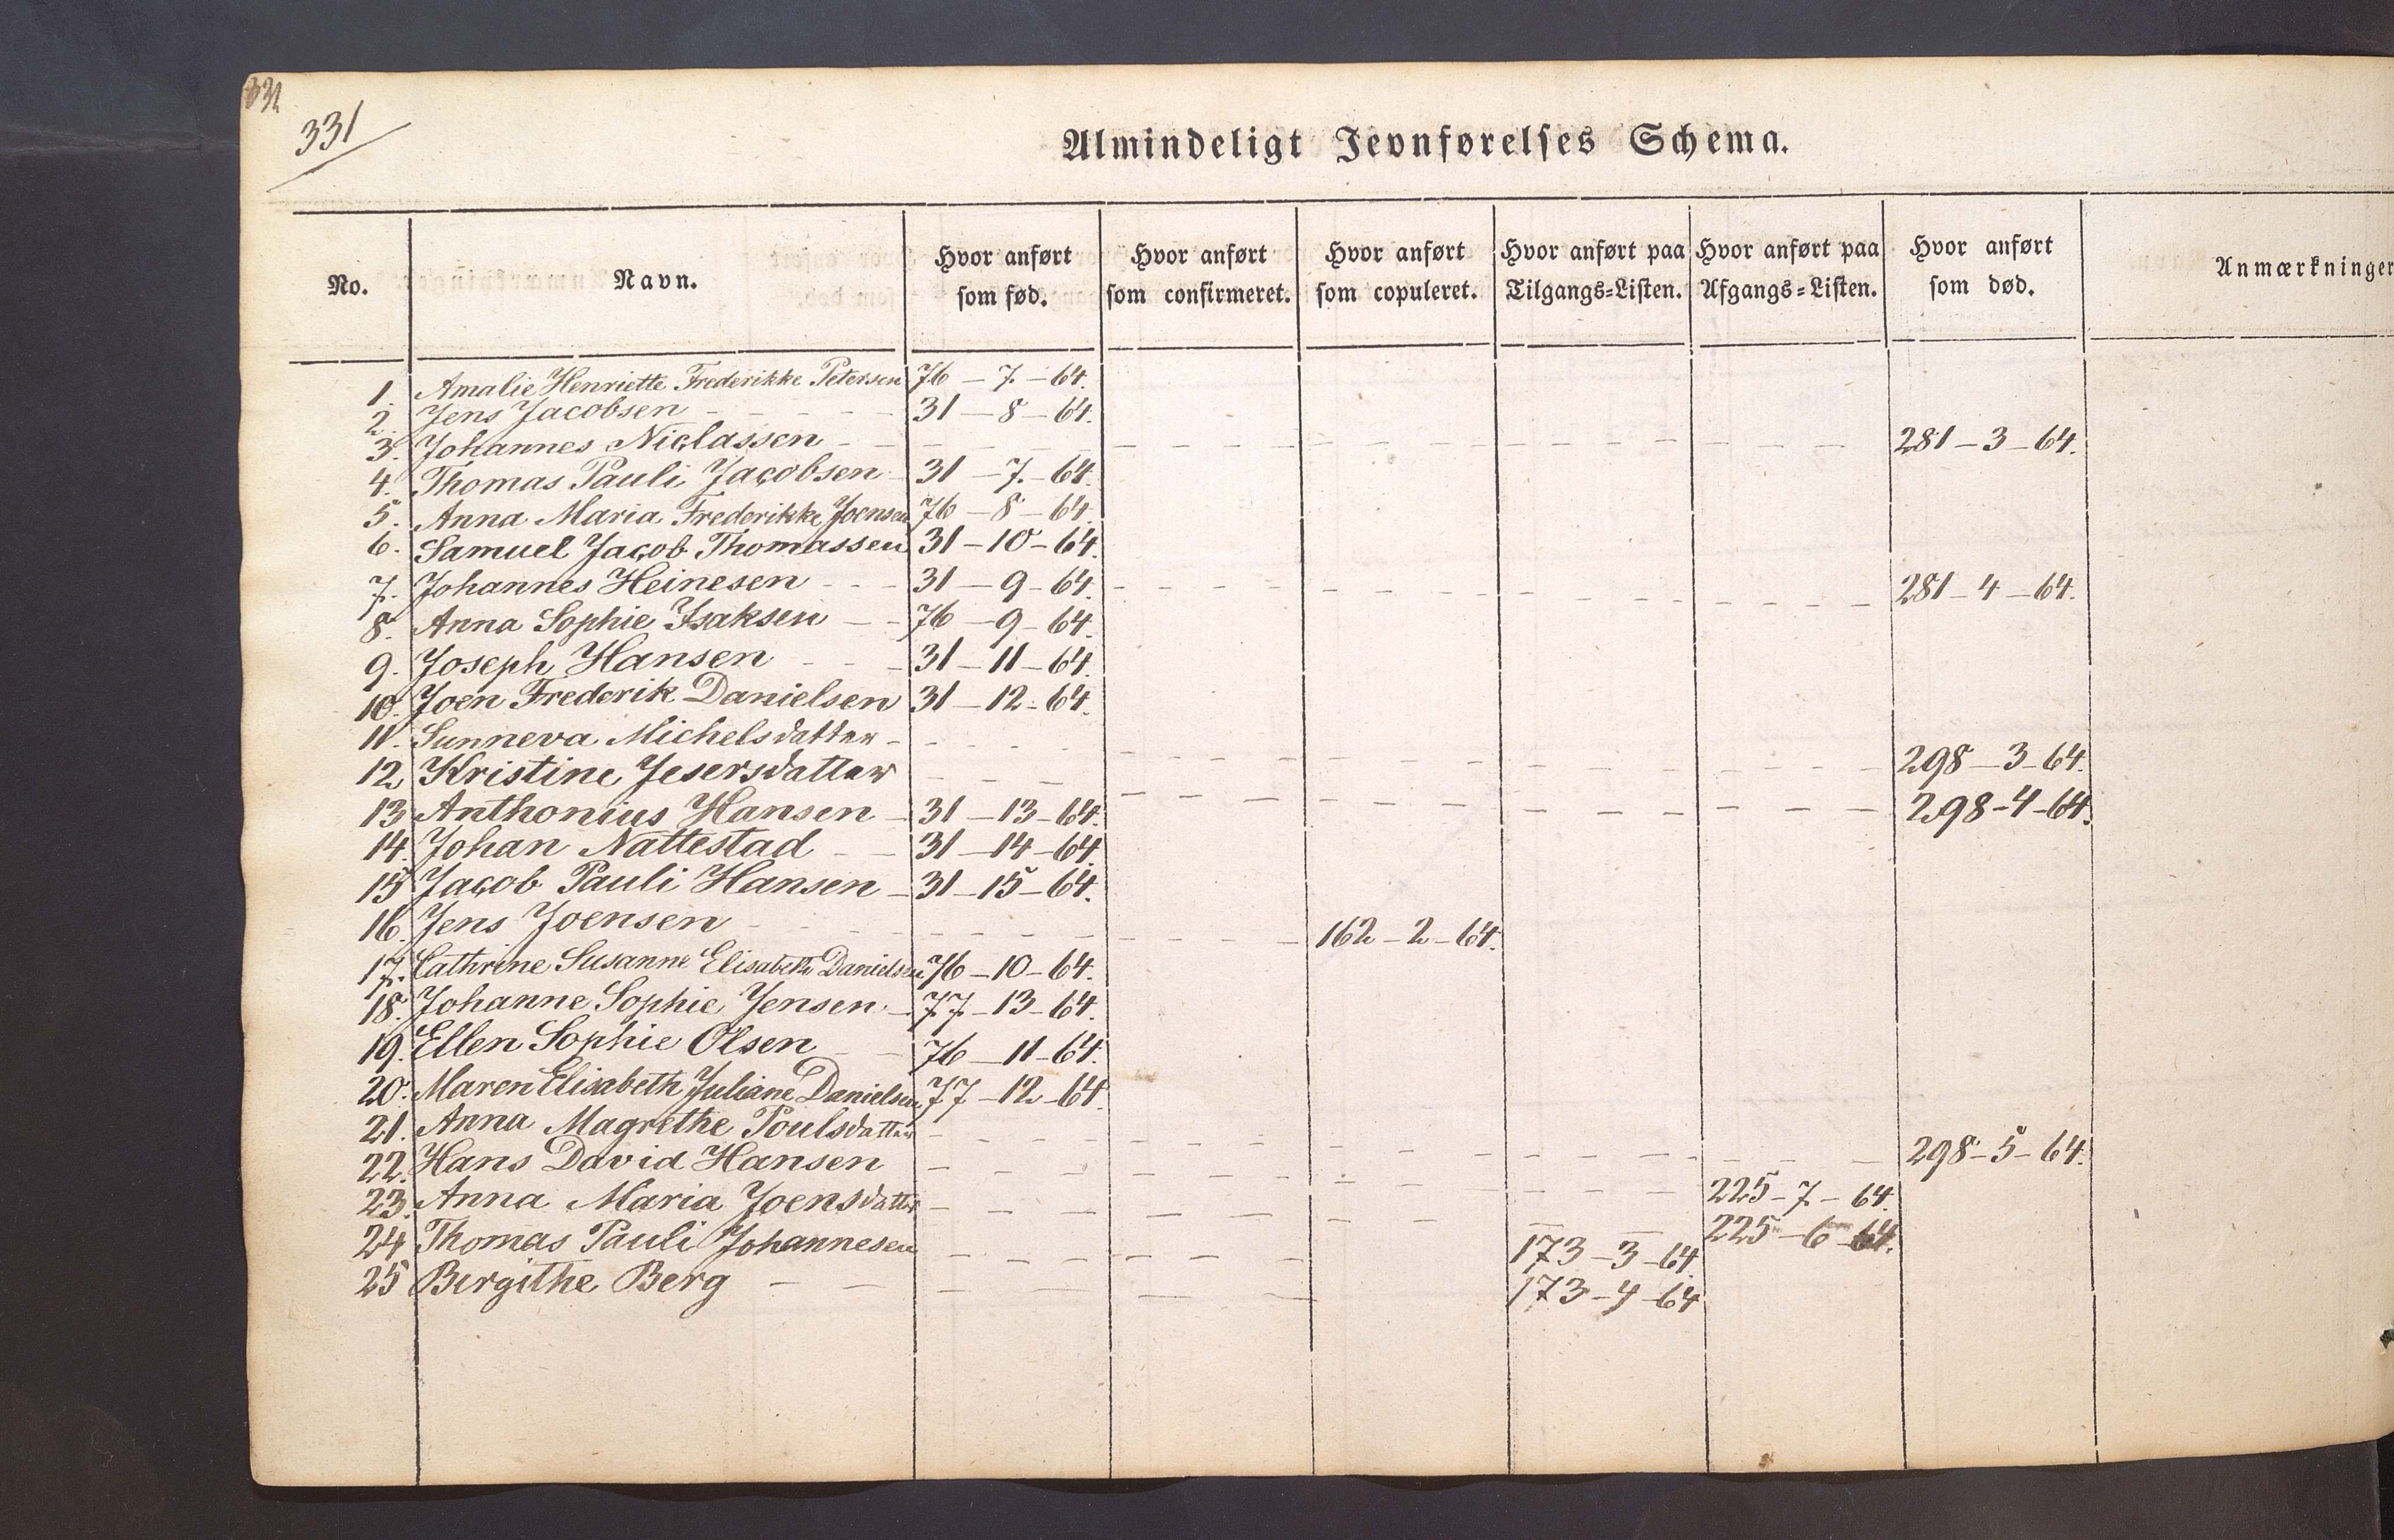 331
331
Almindeligt Jevnførelses Schema.
No. Navn. Hvor anført som fød. Hvor anført som confirmeret. Hvor anført som copuleret. Hvor anført paa Tilgangs-Listen. Hvor anført paa Afgangs-Listen. Hvor anført som død. Anmærkninger
1. Amalie Henriette Frederikke Petersen 76 - 7. - 64.
2. Jens Jacobsen - - - - - 31 - 8 - 64.
3. Johannes Niclassen - - - - - 281 - 3 - 64.
4. Thomas Pauli Jacobsen - 31 - 7. - 64.
5. Anna Maria Frederikke Joensen 76 - 8 - 64.
6. Samuel Jacob Thomassen 31 - 10 - 64.
7. Johannes Heinesen - - - 31 - 9 - 64. - - - - - 281 - 4 - 64.
8. Anna Sophie Isaksen - - 76 - 9 - 64.
9. Joseph Hansen - - - 31 - 11 - 64.
10. Joen Frederik Danielsen 31 - 12 - 64.
11. Sunneva Michelsdatter - - - - - 298 - 3 - 64.
12. Kristine Jesersdatter - - - - - 298 - 4 - 64.
13. Anthonius Hansen - 31 - 13 - 64.
14. Johan Nattestad - - 31 - 14 - 64.
15. Jacob Pauli Hansen - 31 - 15 - 64.
16. Jens Joensen - - - - - 162 - 2 - 64.
17. Cathrine Susanne Elisabeth Danielsen 76 - 10 - 64.
18. Johanne Sophie Jensen - 77 - 13 - 64.
19. Ellen Sophie Olsen - - 76 - 11 - 64.
20. Maren Elisabeth Juliane Danielsen 77 - 12 - 64.
21. Anna Magrethe Poulsdatter - - - - - 298 - 5 - 64.
22. Hans David Hansen - - - - - 225 - 7 - 64.
23. Anna Maria Joensdatter - - - - - 225 - 6 - 64.
24 Thomas Pauli Johannesen - - - - - 173 - 3 - 64.
25 Birgithe Berg - - - - - 173 - 4 - 64